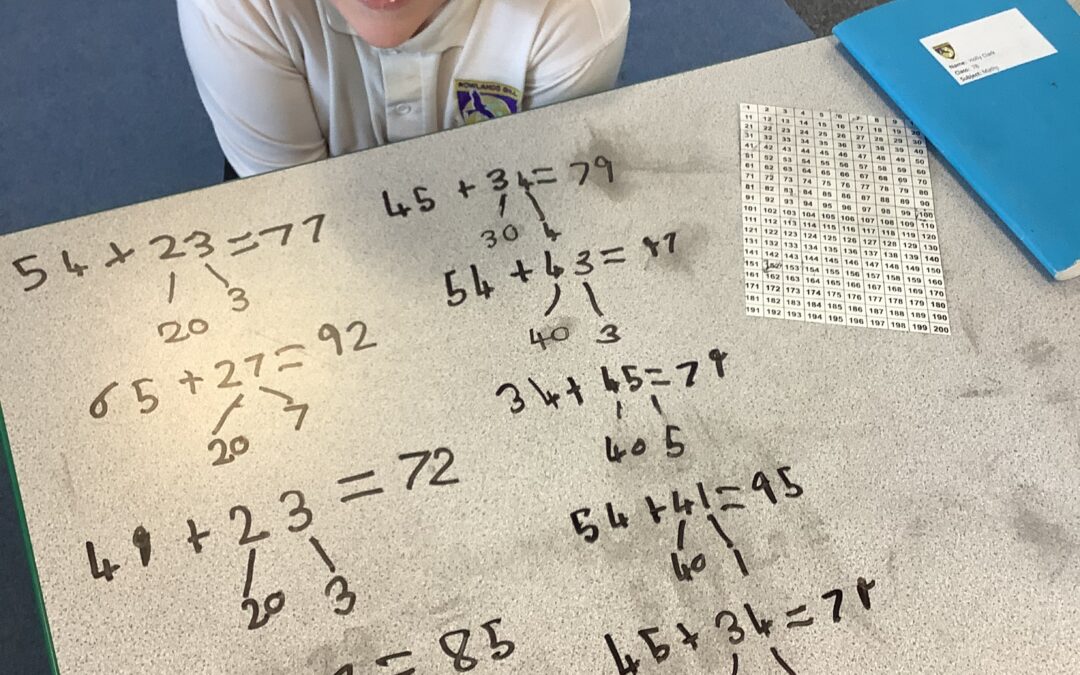 54 + 23 = 77
20 3
65 + 27 = 92
20 7
49 + 23 = 72
20 3
= 85
45 + 34 = 79
30 4
54 + 43 = 97
40 3
34 + 45 = 79
40 5
54 + 41 = 95
40 1
45 + 34 = 79
ROWLANDS GILL
Name: Holly Clark
Class: 7B
Subject: Maths
1 2 3 4 5 6 7 8 9
11 12 13 14 15 16 17 18 19 20
21 22 23 24 25 26 27 28 29 30
31 32 33 34 35 36 37 38 39 40
41 42 43 44 45 46 47 48 49 50
51 52 53 54 55 56 57 58 59 60
61 62 63 64 65 66 67 68 69 70
71 72 73 74 75 76 77 78 79 80
81 82 83 84 85 86 87 88 89 90
91 92 93 94 95 96 97 98 99 100
101 102 103 104 105 106 107 108 109 110
111 112 113 114 115 116 117 118 119 120
121 122 123 124 125 126 127 128 129 130
131 132 133 134 135 136 137 138 139 140
141 142 143 144 145 146 147 148 149 150
151 153 154 155 156 157 158 159 160
161 162 163 164 165 166 167 168 169 170
171 172 173 174 175 176 177 178 179 180
181 182 183 184 185 186 187 188 189 190
191 192 193 194 195 196 197 198 199 200